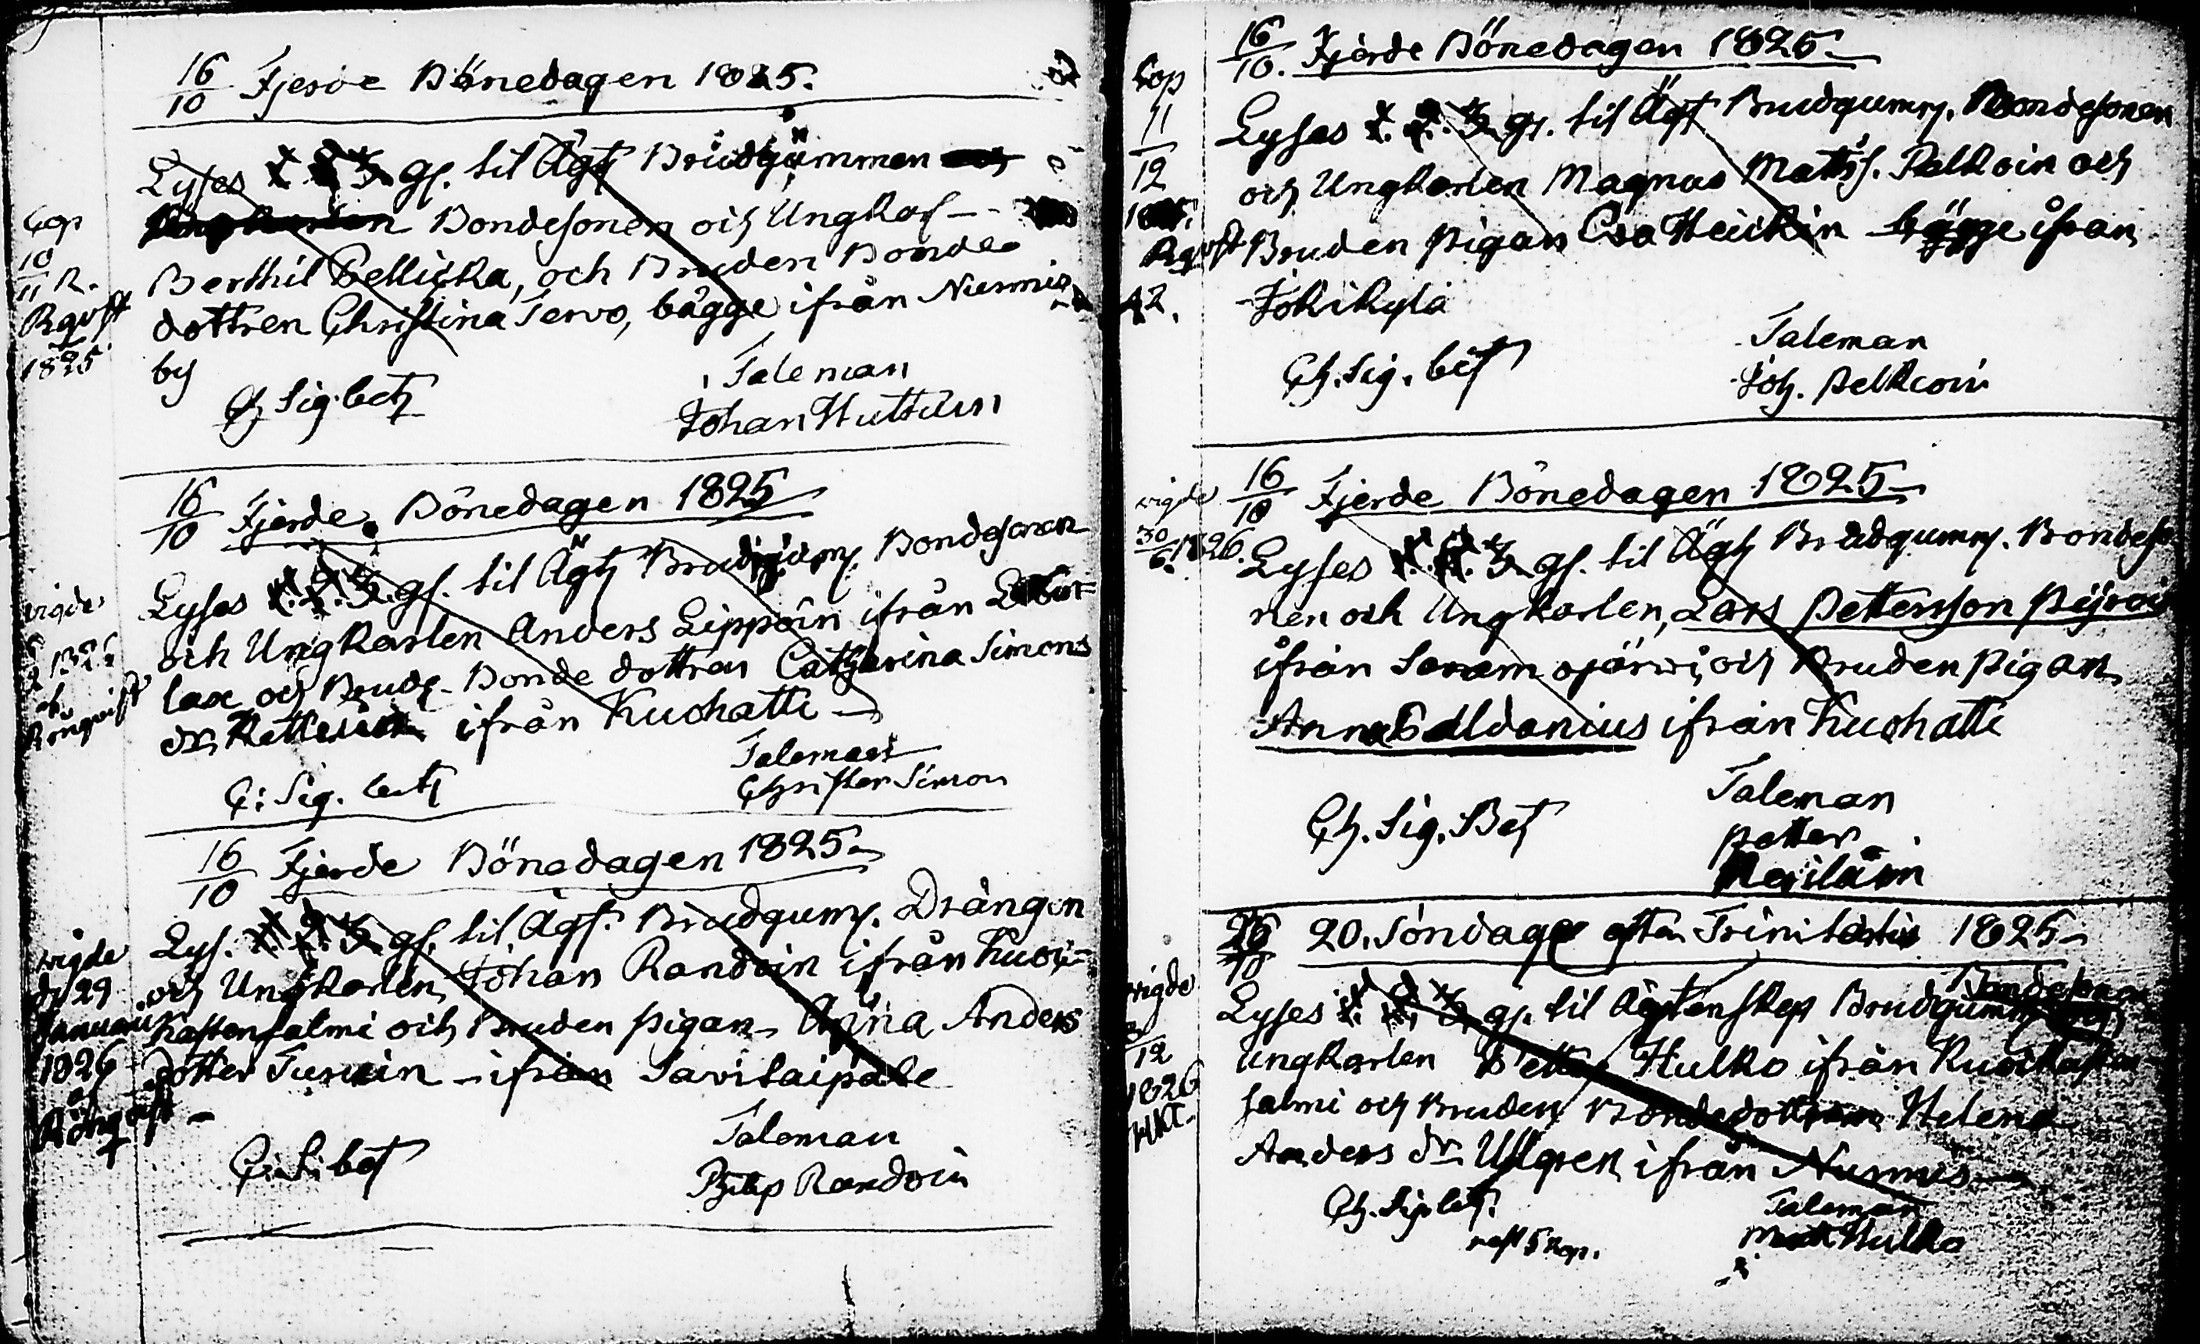 16/10 Fjerde Bönedagen 1825.
Lyses 1. 2. 3. gs. til Ägt Brudgummen
Bondesonen och Ungkarl
Berthil Pellicka, och Bruden Bonde
dottren Christina Tervo, bägge ifrån Nurmis
by
Ch Sig. bet
Taleman
Johan Huttuin
Cop
10
11 R.
Rqvst
1825
16/10 Fjerde Bönedagen 1825
Lyses 1. 2. 3. gs. til Ägt Brudgum. Bondesonen
och Ungkarlen Anders Lippoin ifrån
lax och Brud. Bonde dottren Catharina Simons
dr. ifrån Kuohatti
C: Sig. bet
Taleman
Christer Simon
vigde
af
Rönqvist
16/10 Fjerde Bönedagen 1825
Lys. 1. 2. 3. gs. til Ägt. Brudgum. Drängen
och Ungkarlen Johan Randoin ifrån Kuoi-
kastensalmi och Bruden pigan Anna Anders
dotter Turuin ifrån Savitaipale
C: S. bet
Taleman
Randoin
vigde
d 29
Januarii
1826
af
Rönqvist
16/10. Fjerde Bönedagen 1825
Lyses 1. 2. 3. gs. til Ägt Brudgumm. Bondesonen
och Ungkarlen Magnus Matts. Palkoin och
Bruden pigan Eva Heickin bägge ifrån
Jokikylä
Ch. Sig. bet
Taleman
Joh. Pelkoin
Cop
11
12
Rqvst
42.
16/10 Fjerde Bönedagen 1825
Lyses 1. 2. 3. gs. til Ägt Brudgumm. Bondeso
nen och Ungkarlen, Lars Pettersson
ifrån Saramojärvi, och Bruden pigan
Anna Caldonius ifrån Kuohatti
Ch. Sig. Bet
Taleman
Petter
vigde
30/6 1826.
20. Söndag efter Trinitatis 1825
Lyses 1. 2. 3. gs. til Ägtenskap Brudgumm Bondesonen
Ungkarlen Petter Hulko ifrån Kuoikasten
salmi och Bruden Bondedottren Helena
Anders dr Ullgren ifrån Nurmis
Ch. Sig bet.
rest 5 kop.
Taleman
Matt Hulko
vigde
12
1826